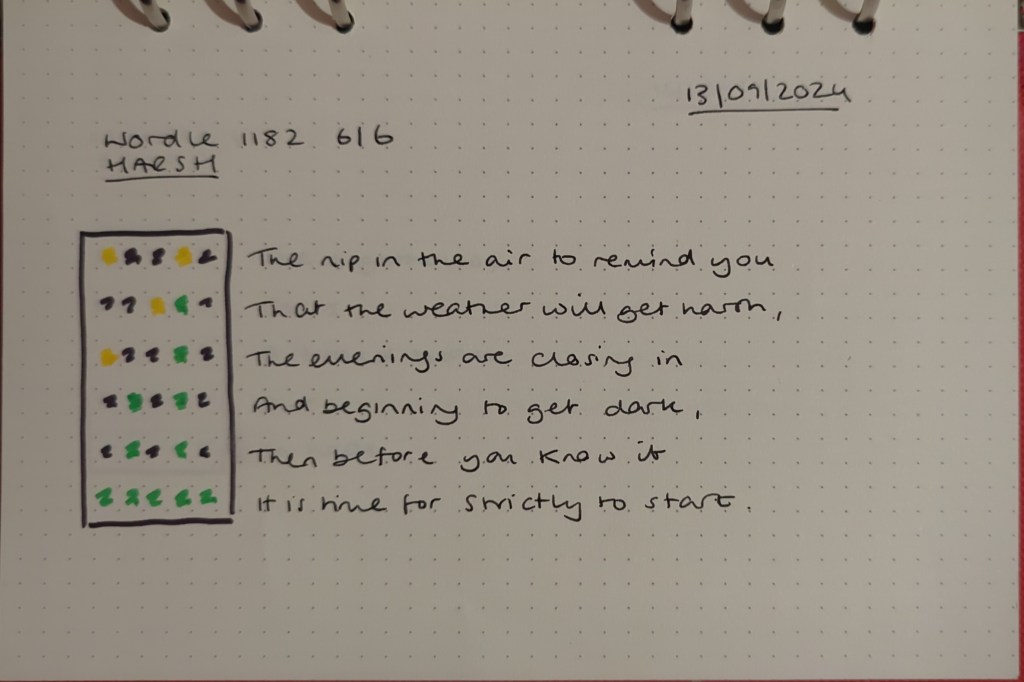 13/09/2024
Wordle 1182 6/6
HARSH
The nip in the air to remind you
That the weather will get harsh,
The evenings are closing in
And beginning to get dark,
Then before you know it
It is time for Strictly to start.